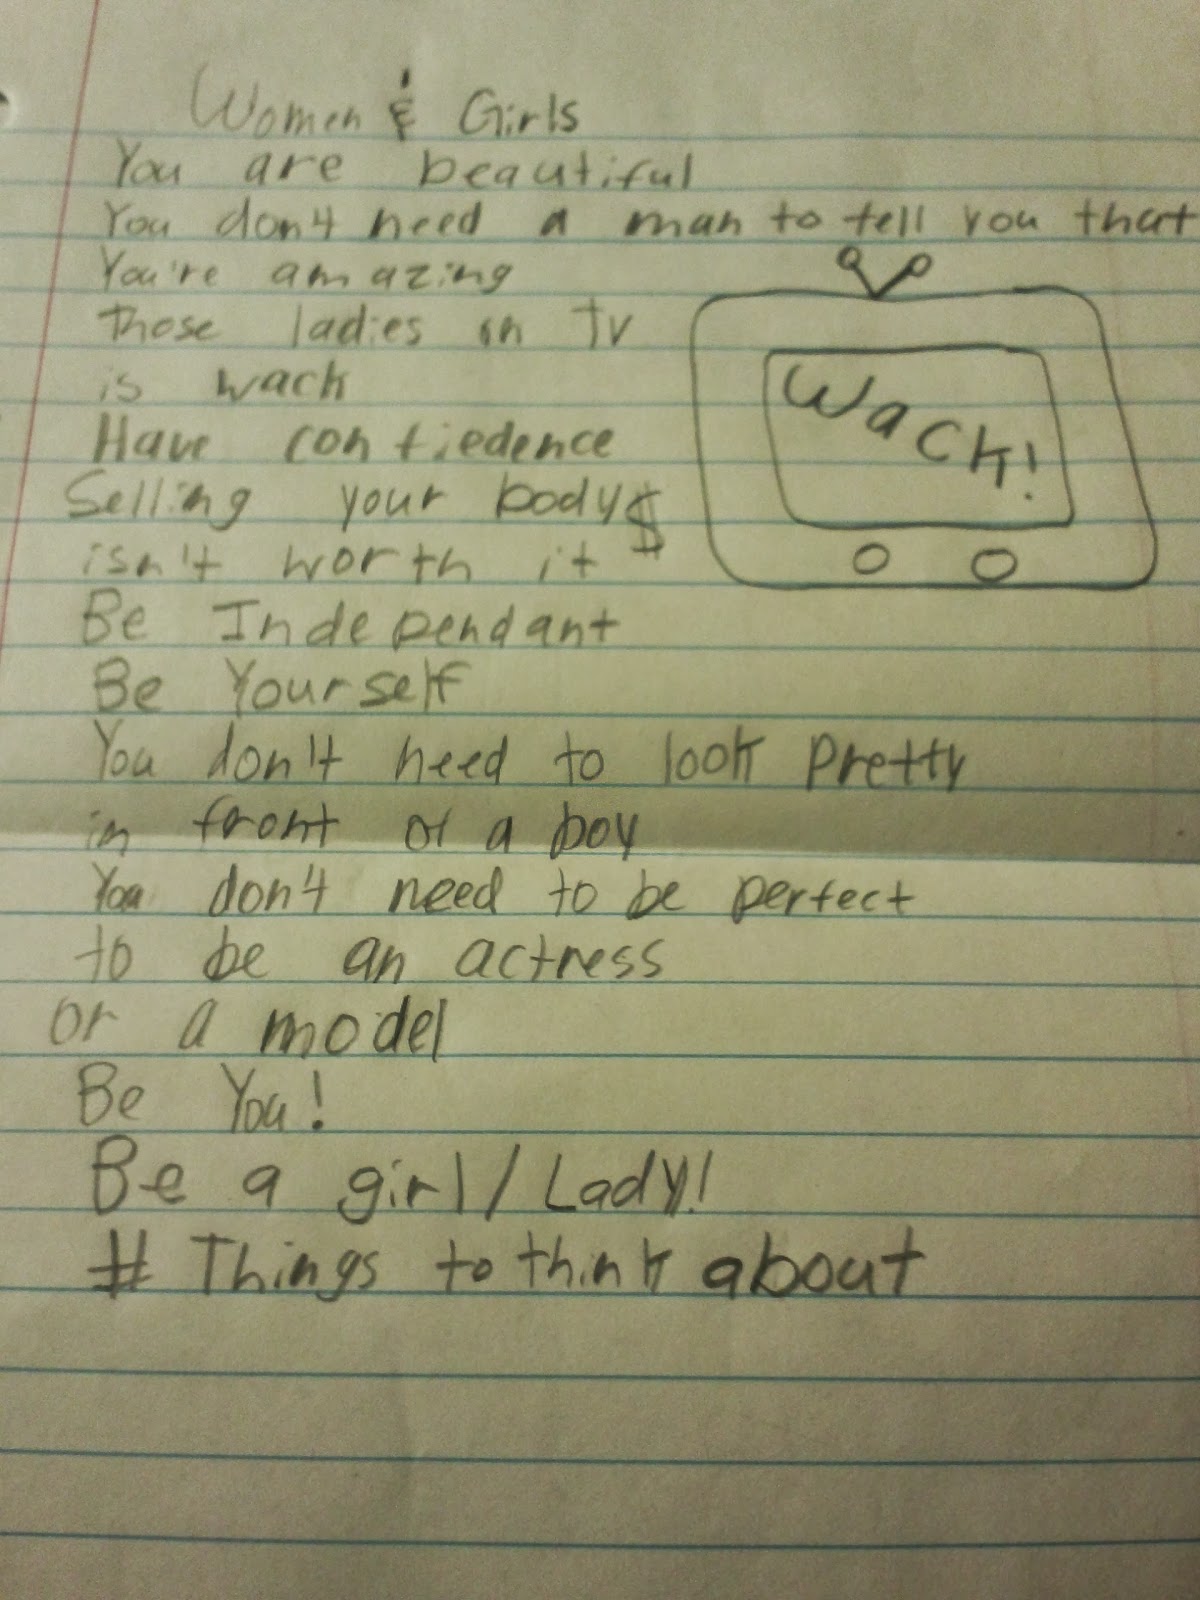 Women & Girls
You are beautiful
You don't need a man to tell you that
You're amazing
Those ladies on TV
is wack
WACK!
Have confiedence
Selling your body $
isn't worth it
Be Independant
Be Yourself
You don't need to look pretty
in front of a boy
You don't need to be perfect
to be an actress
or a model
Be You!
Be a girl/Lady!
# Things to think about